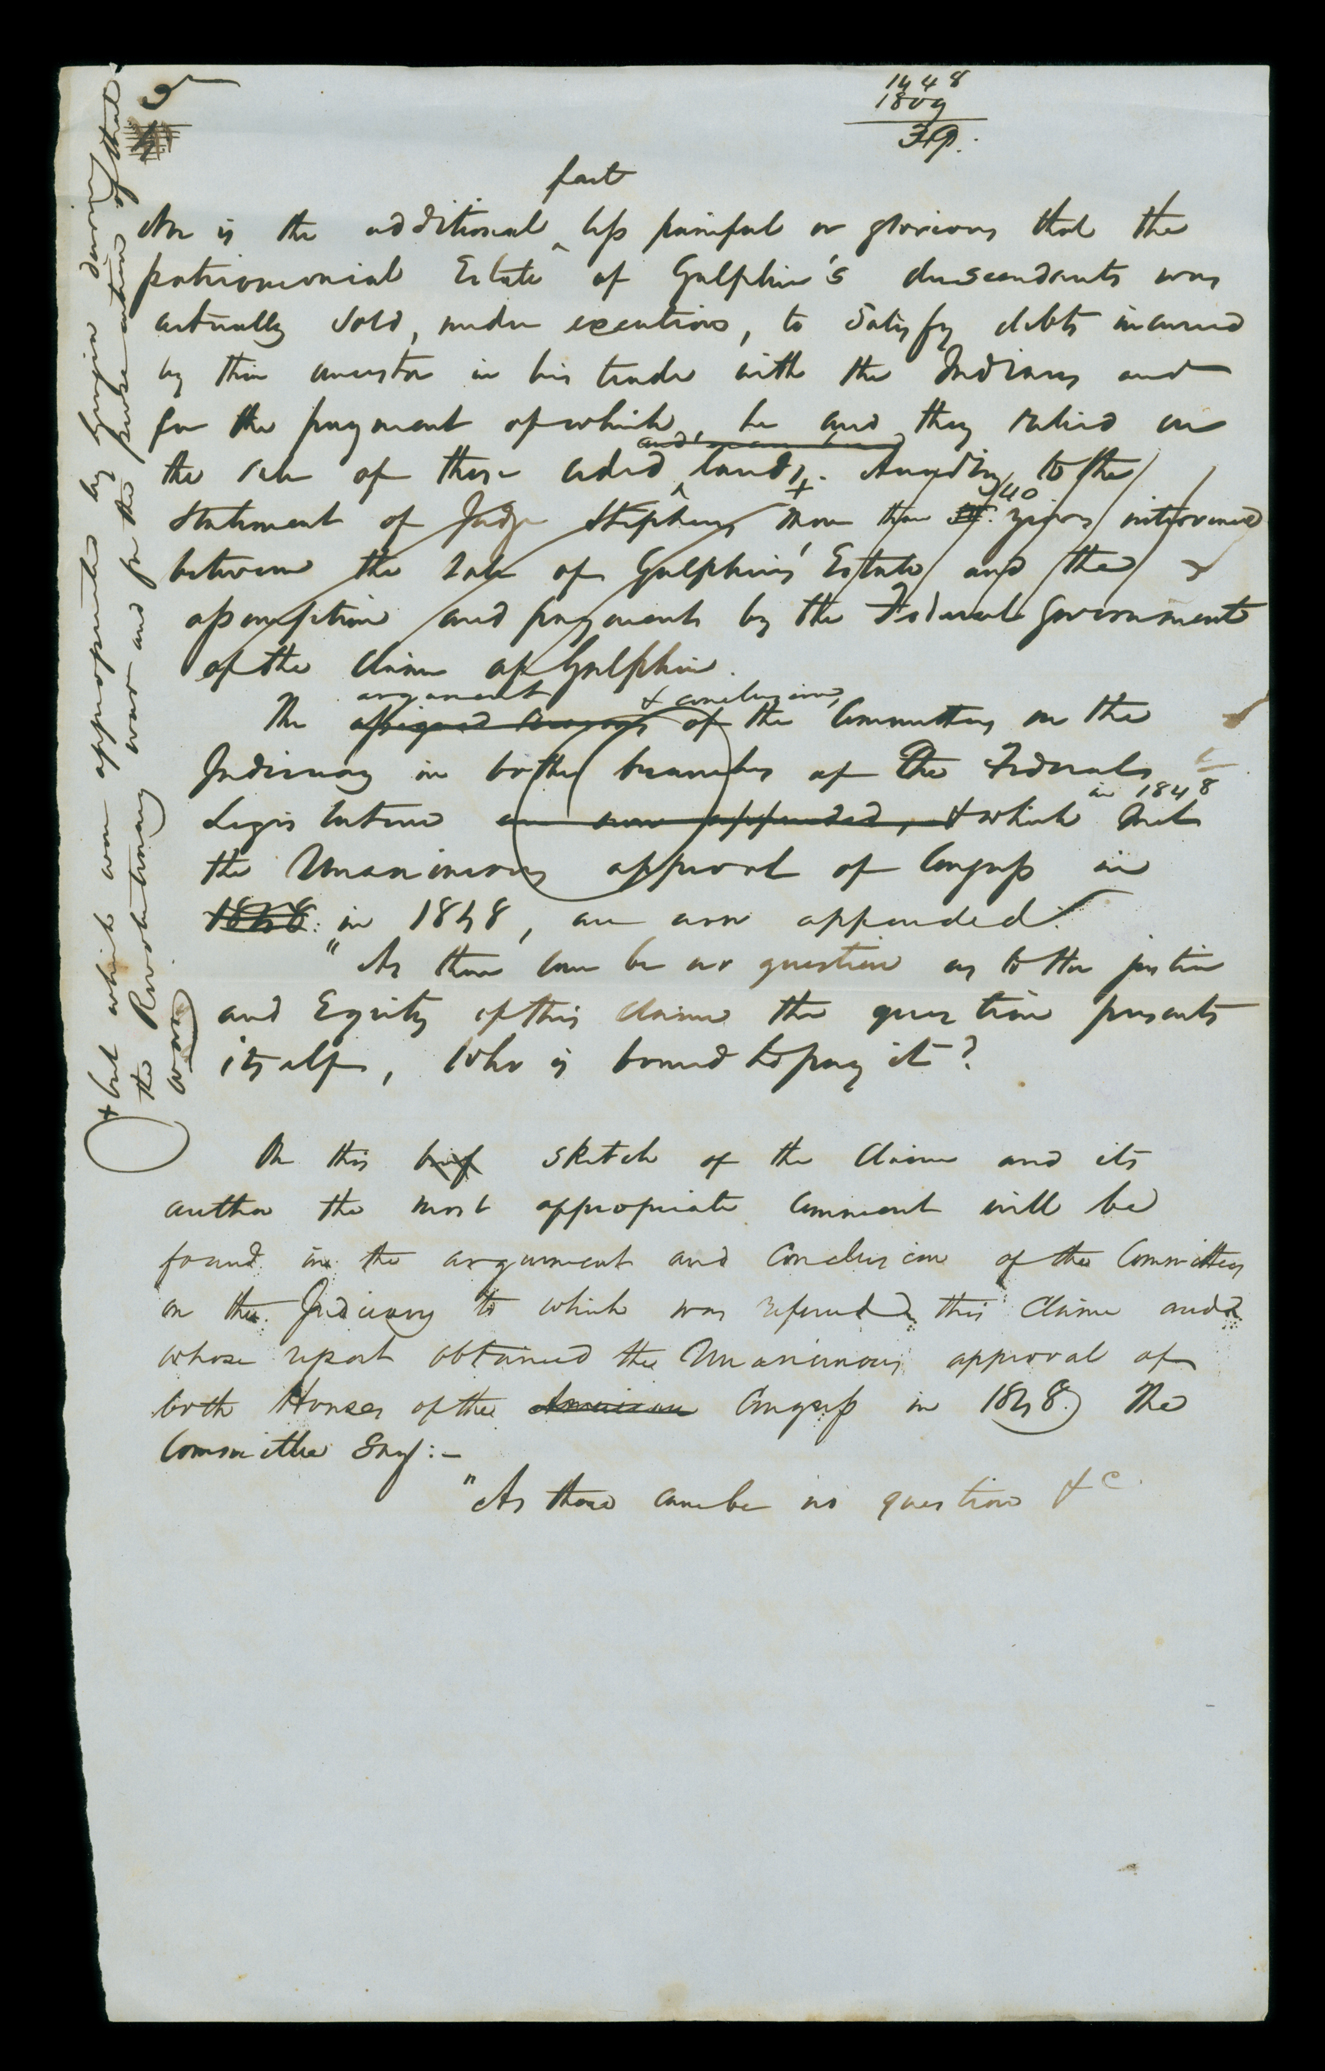 5
1848
1809
39.
fact
Nor is the additional less painful or glorious that the
patrimonial Estate of Galphin's descendants was
actually sold, under execution, to satisfy debts incurred
by their ancestor in his trade with the Indians and
for the payment of which, he and they relied on
the sale of these ceded lands +. According to the
Statement of Judge Stephens more than 40 years intervened
between the Sale of Galphins' Estate and the
assumption and payments by the Federal Government
of the claim of Galphin.
argument & conclusions,
The assigned reasons of the Committees on the
Judiciary in both branches of the Federal
in 1848
Legislature are now appended, & which met
the Unanimous approval of Congress in
1848. in 1848, are now appended.
"As there can be no question as to the justice
and Equity of this claim the question presents
itself, Who is bound to pay it?
On this brief sketch of the Claim and its
author the most appropriate Comment will be
found in the argument and Conclusion of the Committees
on the Judiciary to which was referred this Claim and
whose report obtained the Unanimous approval of
both Houses of the American Congress in 1848. The
Committee Say: —
"As there can be no question &c.
+ but which were appropriated by Georgia during
the Revolutionary war and for the prosecution of that
war